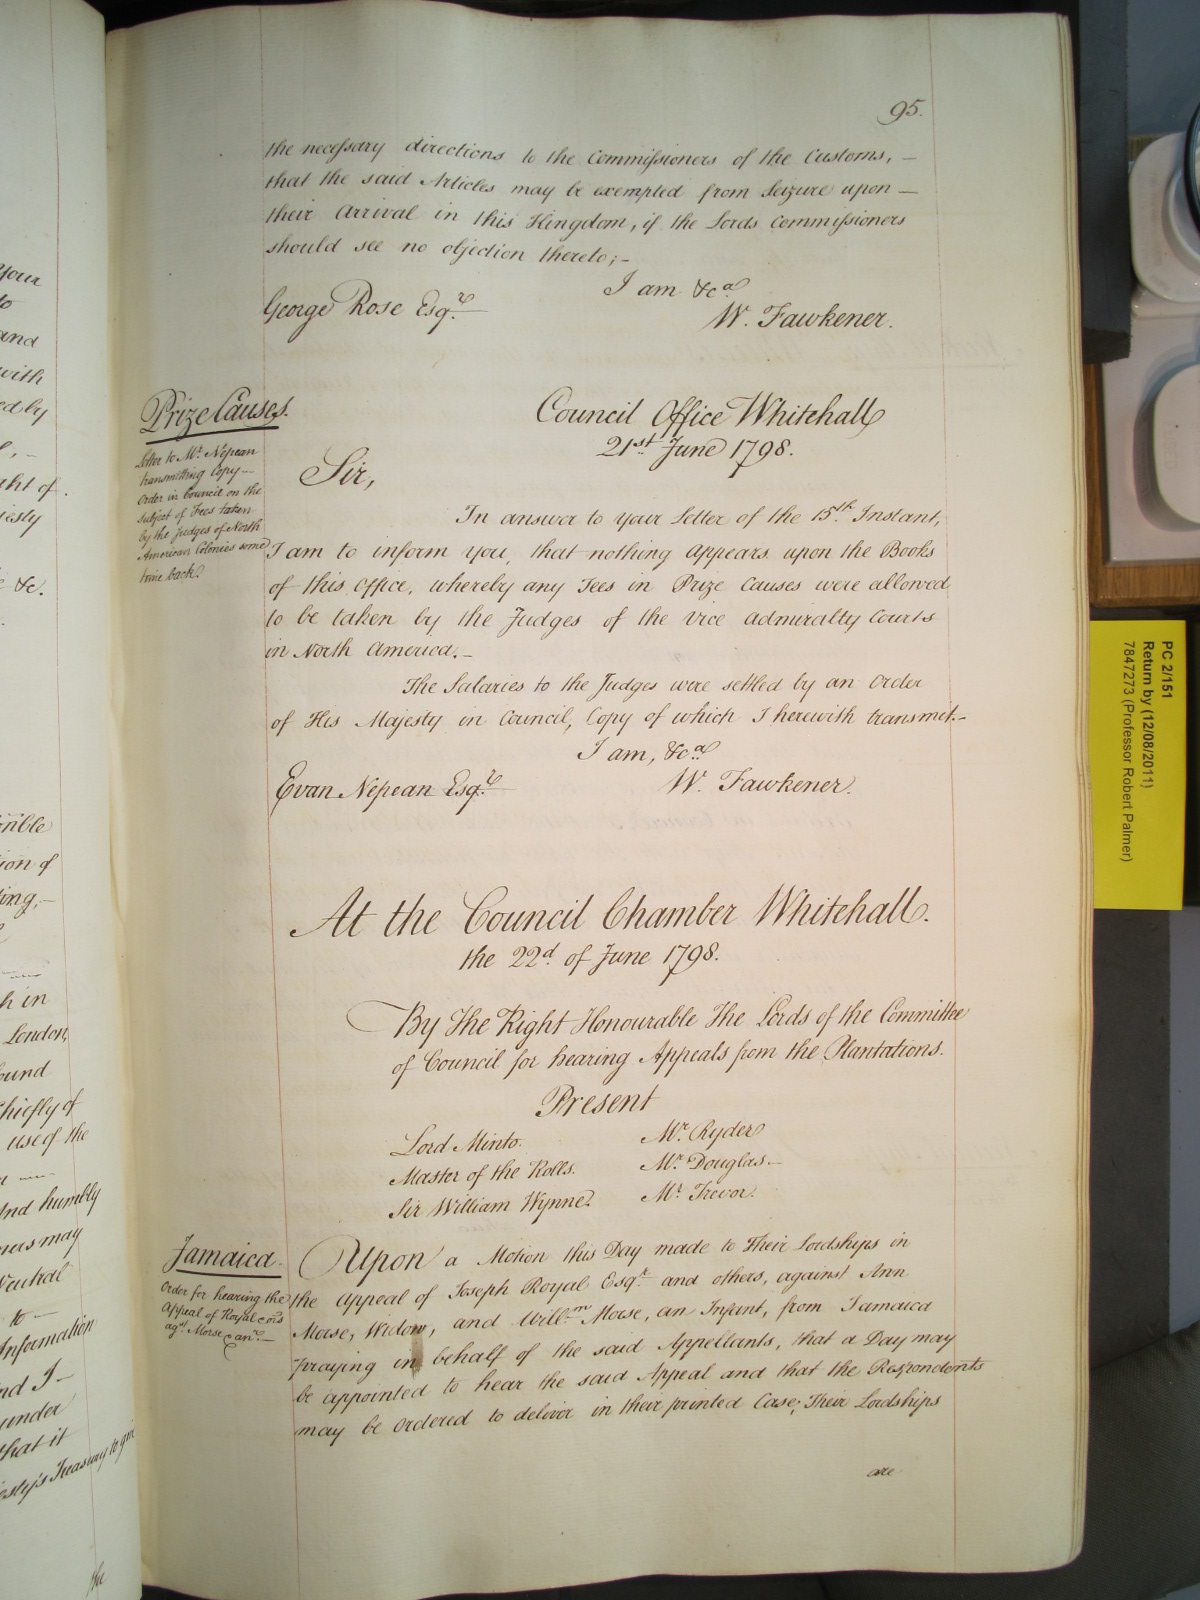 95.
the necessary directions to the Commissioners of the Customs, –
that the said Articles may be exempted from Seizure upon –
their Arrival in this Kingdom, if the Lords Commissioners
should see no objection thereto; –
I am &ca
George Rose Esqr.
W. Fawkener.
Prize Causes.
Letter to Mr. Nepean
transmitting Copy –
Order in Council on the
subject of Fees taken
by the judges of North
American Colonies some
time back.
Council Office Whitehall
21st June 1798.
Sir,
In answer to your Letter of the 15th Instant,
I am to inform you, that nothing appears upon the Books
of this Office, whereby any Fees in Prize Causes were allowed
to be taken by the Judges of the Vice Admiralty Courts
in North America. –
The Salaries to the Judges were settled by an Order
of His Majesty in Council, Copy of which I herewith transmit. –
I am, &ca
Evan Nepean Esqr.
W. Fawkener.
At the Council Chamber Whitehall.
the 22d of June 1798.
By The Right Honourable The Lords of the Committee
of Council for hearing Appeals from the Plantations.
Present
Lord Minto. Mr. Ryder
Master of the Rolls. Mr. Douglas –
Sir William Wynne. Mr. Trevor.
Jamaica.
Order for hearing the
Appeal of Royal
agt. Morse & anr. –
Upon a Motion this Day made to Their Lordships in
the Appeal of Joseph Royal Esqr. and others, against Ann
Morse, Widow, and Willm. Morse, an Infant, from Jamaica
praying in behalf of the said Appellants, that a Day may
be appointed to hear the said Appeal and that the Respondents
may be ordered to deliver in their printed Case; Their Lordships
are
PC 2/151
Return by (12/08/2011)
7847273 (Professor Robert Palmer)
your
to
and
with
&c.
ing, –
h in
London,
hiefly of
use of the
and humbly
ners may
Neutral
to –
Information
nd I –
under
that it
esty's Treasury to
the